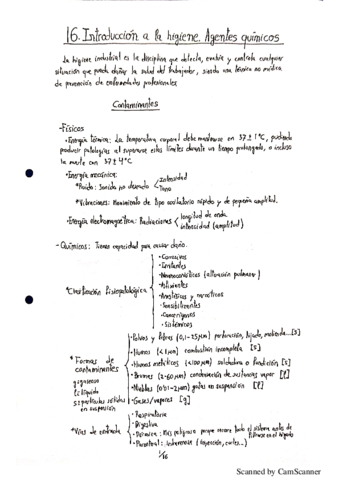 16. Introducción a la higiene. Agentes químicos
La higiene industrial es la disciplina que detecta, evalúa y controla cualquier
situación que pueda dañar la salud del trabajador, siendo una técnica no médica
de prevención de enfermedades profesionales
Contaminantes
-Físicos
*Energía térmica: La temperatura corporal debe mantenerse en 37 ± 1°C, pudiendo
producir patologías al superarse estos límites durante un tiempo prolongado, o incluso
la muerte con 37 ± 4°C
*Energía mecánica:
*Ruido: Sonido no deseado
Intensidad
Tono
*Vibraciones: Movimiento de tipo oscilatorio rápido y de pequeña amplitud.
*Energía electromagnética: Radiaciones
longitud de onda
intensidad (amplitud)
-Químicos: Tienen capacidad para causar daño.
*Clasificación fisiopatológica
*Corrosivos
*Irritantes
*Neumoconióticos (alteración pulmonar)
*Asfixiantes
*Anestésicos y narcóticos
*Sensibilizantes
*Cancerígenos
*Sistémicos
*Formas de
contaminantes
g) gaseoso
l) líquido
s) partículas sólidas
en suspensión
*Polvos y fibras (0,1-25μm) [s]
*Humos (<1μm) combustión incompleta [s]
*Humos metálicos (<100μm) soldadura o fundición [s]
*Brumas (2-60μm) condensación de sustancias vapor [l]
*Nieblas (0'01-2μm) gotas en suspensión [l]
*Gases/vapores [g]
*Vías de entrada
*Respiratoria
*Digestiva
*Dérmica: Más peligrosa porque recorre todo el sistema antes de
filtrarse en el hígado
*Parenteral: (inyección, cortes...)
1/16
Scanned by CamScanner